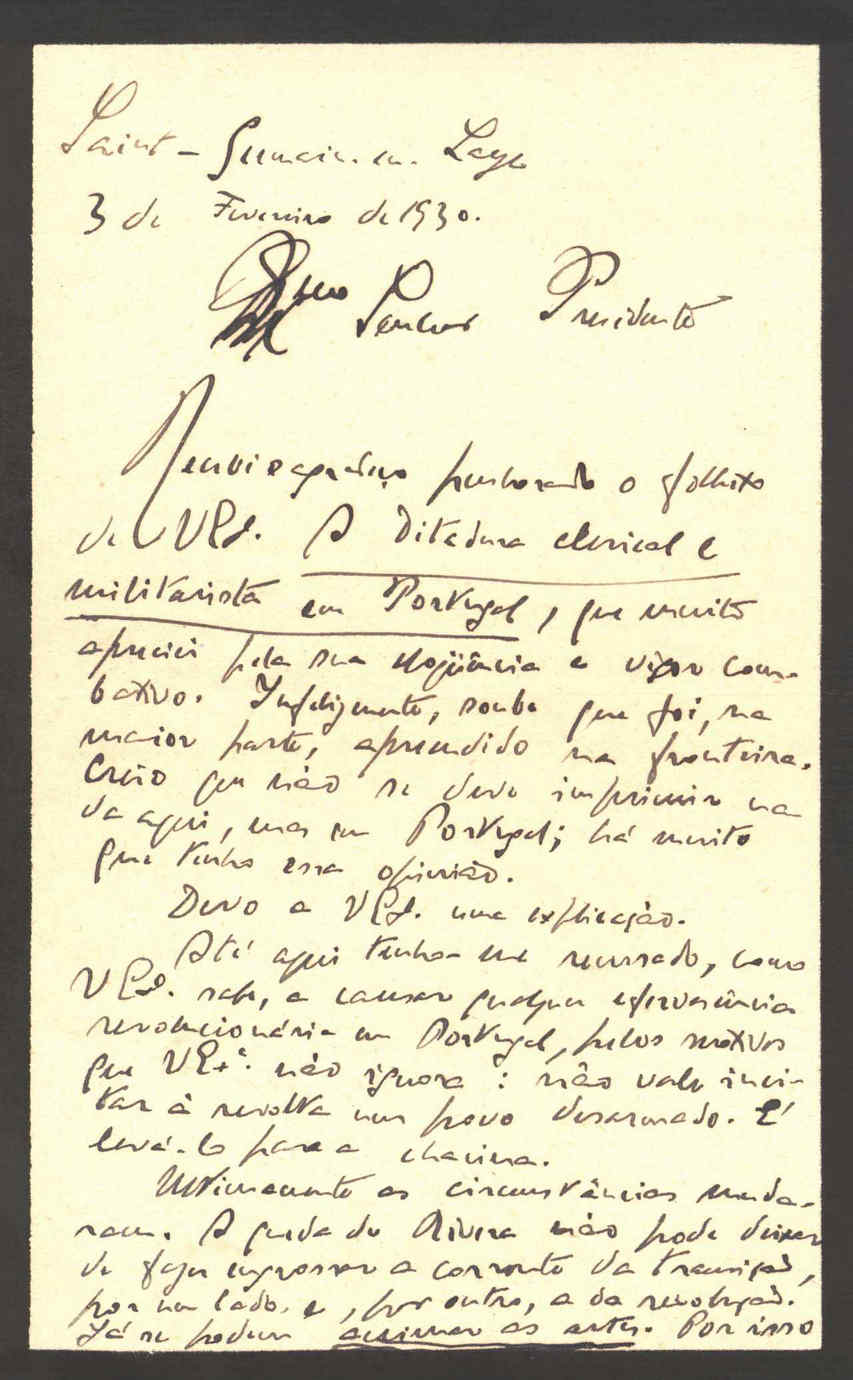 Saint-Germain-en-Laye
3 de Fevereiro de 1930.
Exmo Senhor Presidente
Recebi e agradeço penhorado o folheto
de V Ex. A Ditadura clerical e
militarista em Portugal, que muito
apreciei pela sua eloqüência e vigor com-
bativo. Infelizmente, soube que foi, na
maior parte, aprendido na fronteira.
Creio que não se deve imprimir na
da aqui, mas em Portugal; há muito
que tenho essa opinião.
Devo a V Ex. uma explicação.
Até aqui tenho-me recusado, como
V Ex. sabe, a causar qualquer efervescência
revolucionária em Portugal, pelos motivos
que V Ex.ª não ignora: não vale inci-
tar à revolta um povo desarmado. É
levá-lo para a chacina.
Ultimamente as circunstâncias muda-
ram. A queda de Rivera não pode deixar
de fazer engrossar a corrente da transição,
por um lado, e, por outro, a da revolução.
Já se podem as artes. Por isso